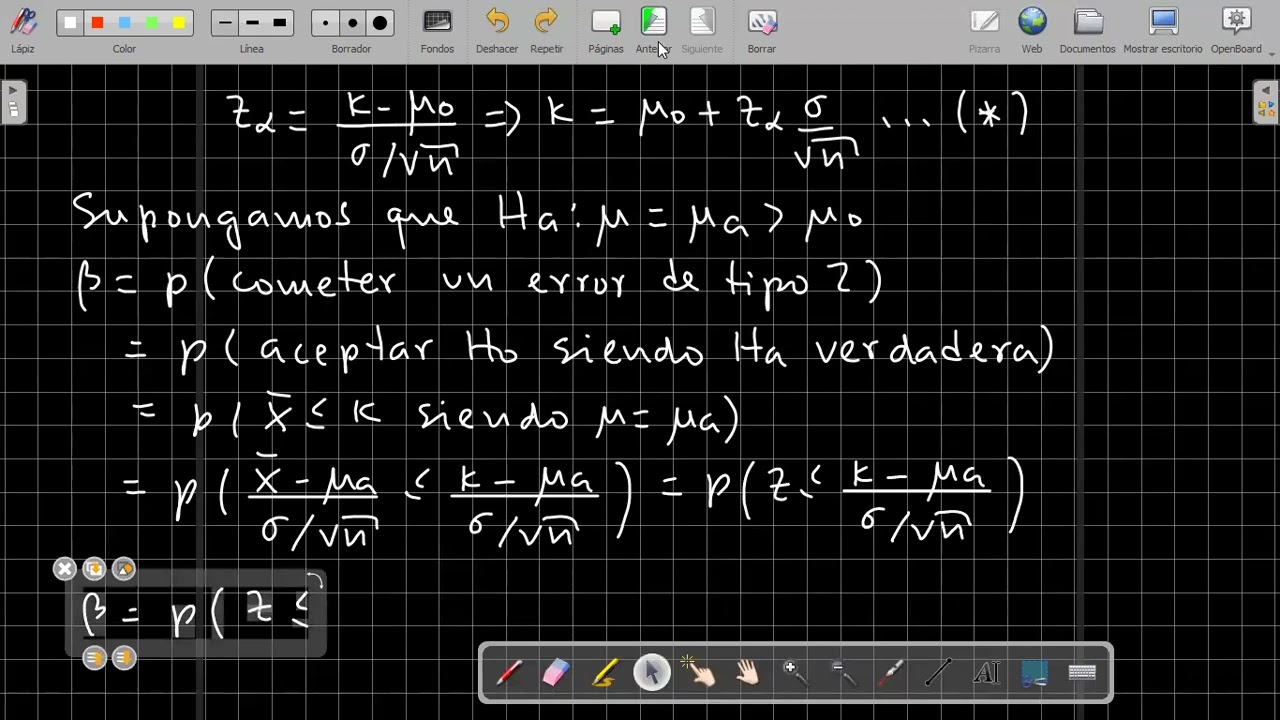 Lápiz Color Línea Borrador Fondos Deshacer Repetir Páginas Anterior Siguiente Borrar Pizarra Web Documentos Mostrar escritorio OpenBoard
zα = (k − μo)/(σ/√n) ⇒ k = μo + zα σ/√n ... (*)
Supongamos que Ha: μ = μa > μo
β = p(cometer un error de tipo 2)
= p(aceptar Ho siendo Ha verdadera)
= p(x̄ ≤ k siendo μ = μa)
= p((x̄ − μa)/(σ/√n) ≤ (k − μa)/(σ/√n)) = p(z ≤ (k − μa)/(σ/√n))
β = p(z ≤
AI